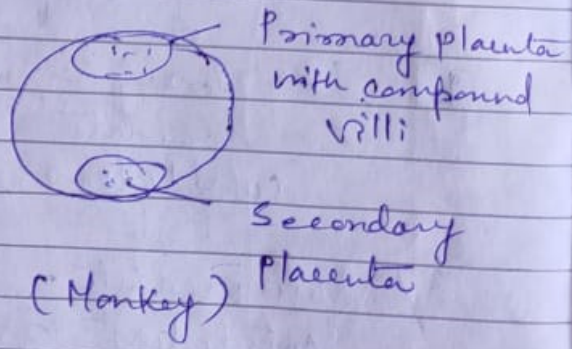 Primary placenta
with compound
villi
Secondary
Placenta
(Monkey)